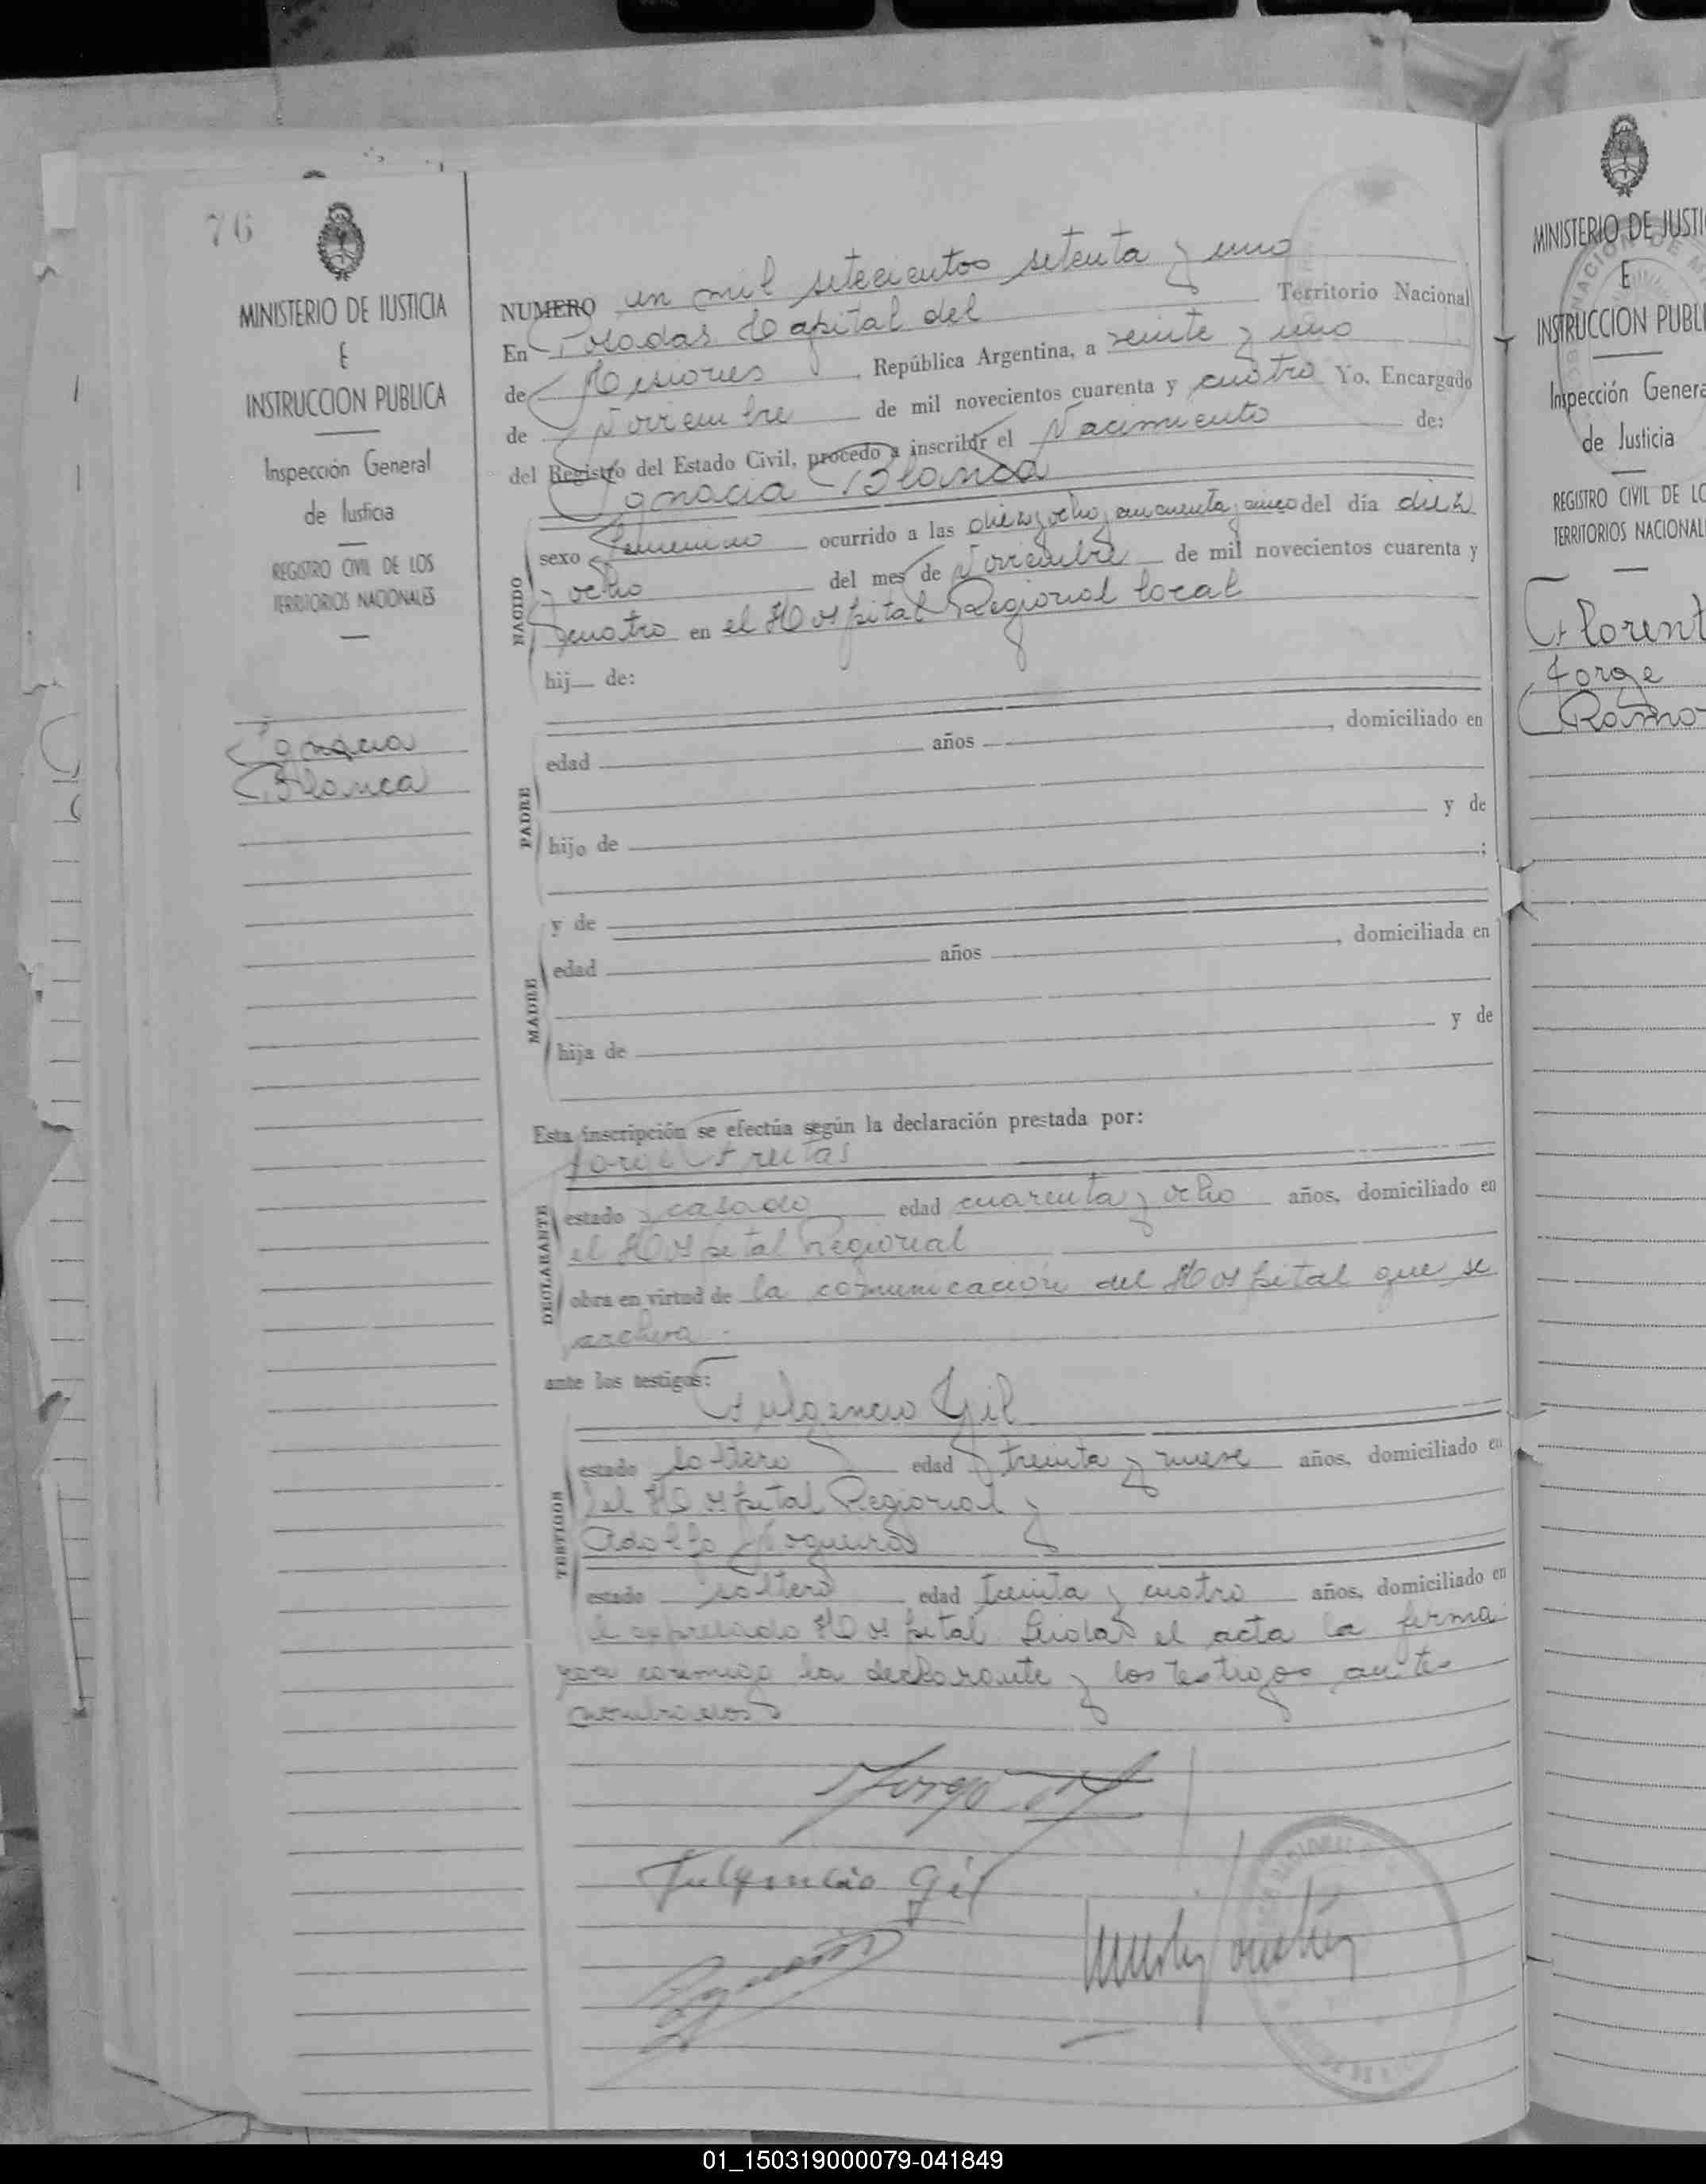 76
MINISTERIO DE JUSTICIA
E
INSTRUCCION PUBLICA
Inspección General
de Justicia
REGISTRO CIVIL DE LOS
TERRITORIOS NACIONALES
Ignacia
Blanca
NUMERO un mil setecientos setenta y uno
En Posadas Capital del Territorio Nacional
de Misiones, República Argentina, a veinte y uno
de Noviembre de mil novecientos cuarenta y cuatro Yo, Encargado
del Registro del Estado Civil, procedo a inscribir el Nacimiento de:
Ignacia Blanca
NACIDO
sexo femenino ocurrido a las diez y ocho y cincuenta y cinco del día diez
y ocho del mes de Noviembre de mil novecientos cuarenta y
cuatro en el Hospital Regional local
hij de:
PADRE
edad años , domiciliado en
hijo de y de
;
MADRE
y de
edad años , domiciliada en
hija de y de
Esta inscripción se efectúa según la declaración prestada por:
Jorge Freitas
DECLARANTE
estado casado edad cuarenta y ocho años, domiciliado en
el Hospital Regional
obra en virtud de la comunicación del Hospital que se
archiva.
ante los testigos:
Fulgencio Gil
TESTIGOS
estado soltero edad treinta y nueve años, domiciliado en
el Hospital Regional y
Adolfo Nogueira
estado soltero edad treinta y cuatro años, domiciliado en
el expresado Hospital. Leida el acta la firma
con conmigo la declarante y los testigos antes
nombrados
Jorge
Fulgencio Gil
MINISTERIO DE JUSTI
E
INSTRUCCION PUBLI
Inspección Genera
de Justicia
REGISTRO CIVIL DE LO
TERRITORIOS NACIONAL
Florent
Jorge
Ramo
01_150319000079-041849